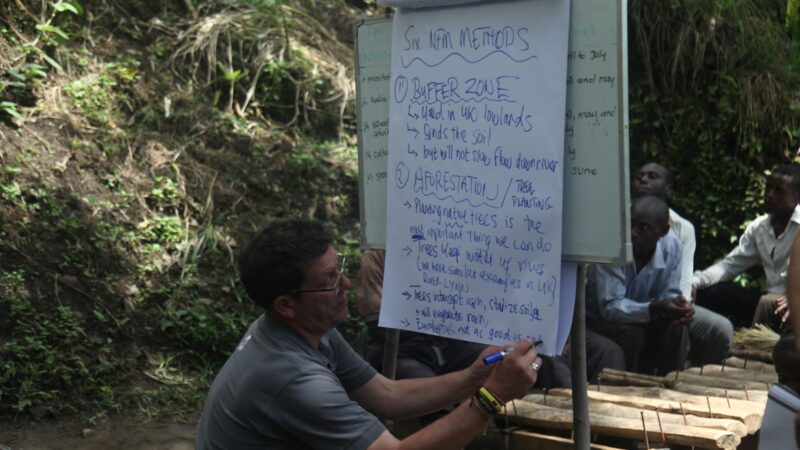 Six NFM METHODS
① BUFFER ZONE
↳ Used in UK lowlands
↳ Binds the soil
↳ but will not slow flow down river
② AFORESTATION / TREE PLANTING
→ Planting native trees is the
most important thing we can do
→ Trees keep water of rivers
(we have similar examples in UK)
→ trees intercept rain, stabilize soils
+ will evaporate rain,
→ Eucalyptus not as good as
monitori
Radio
school
cultu
to July
and may
may and
June